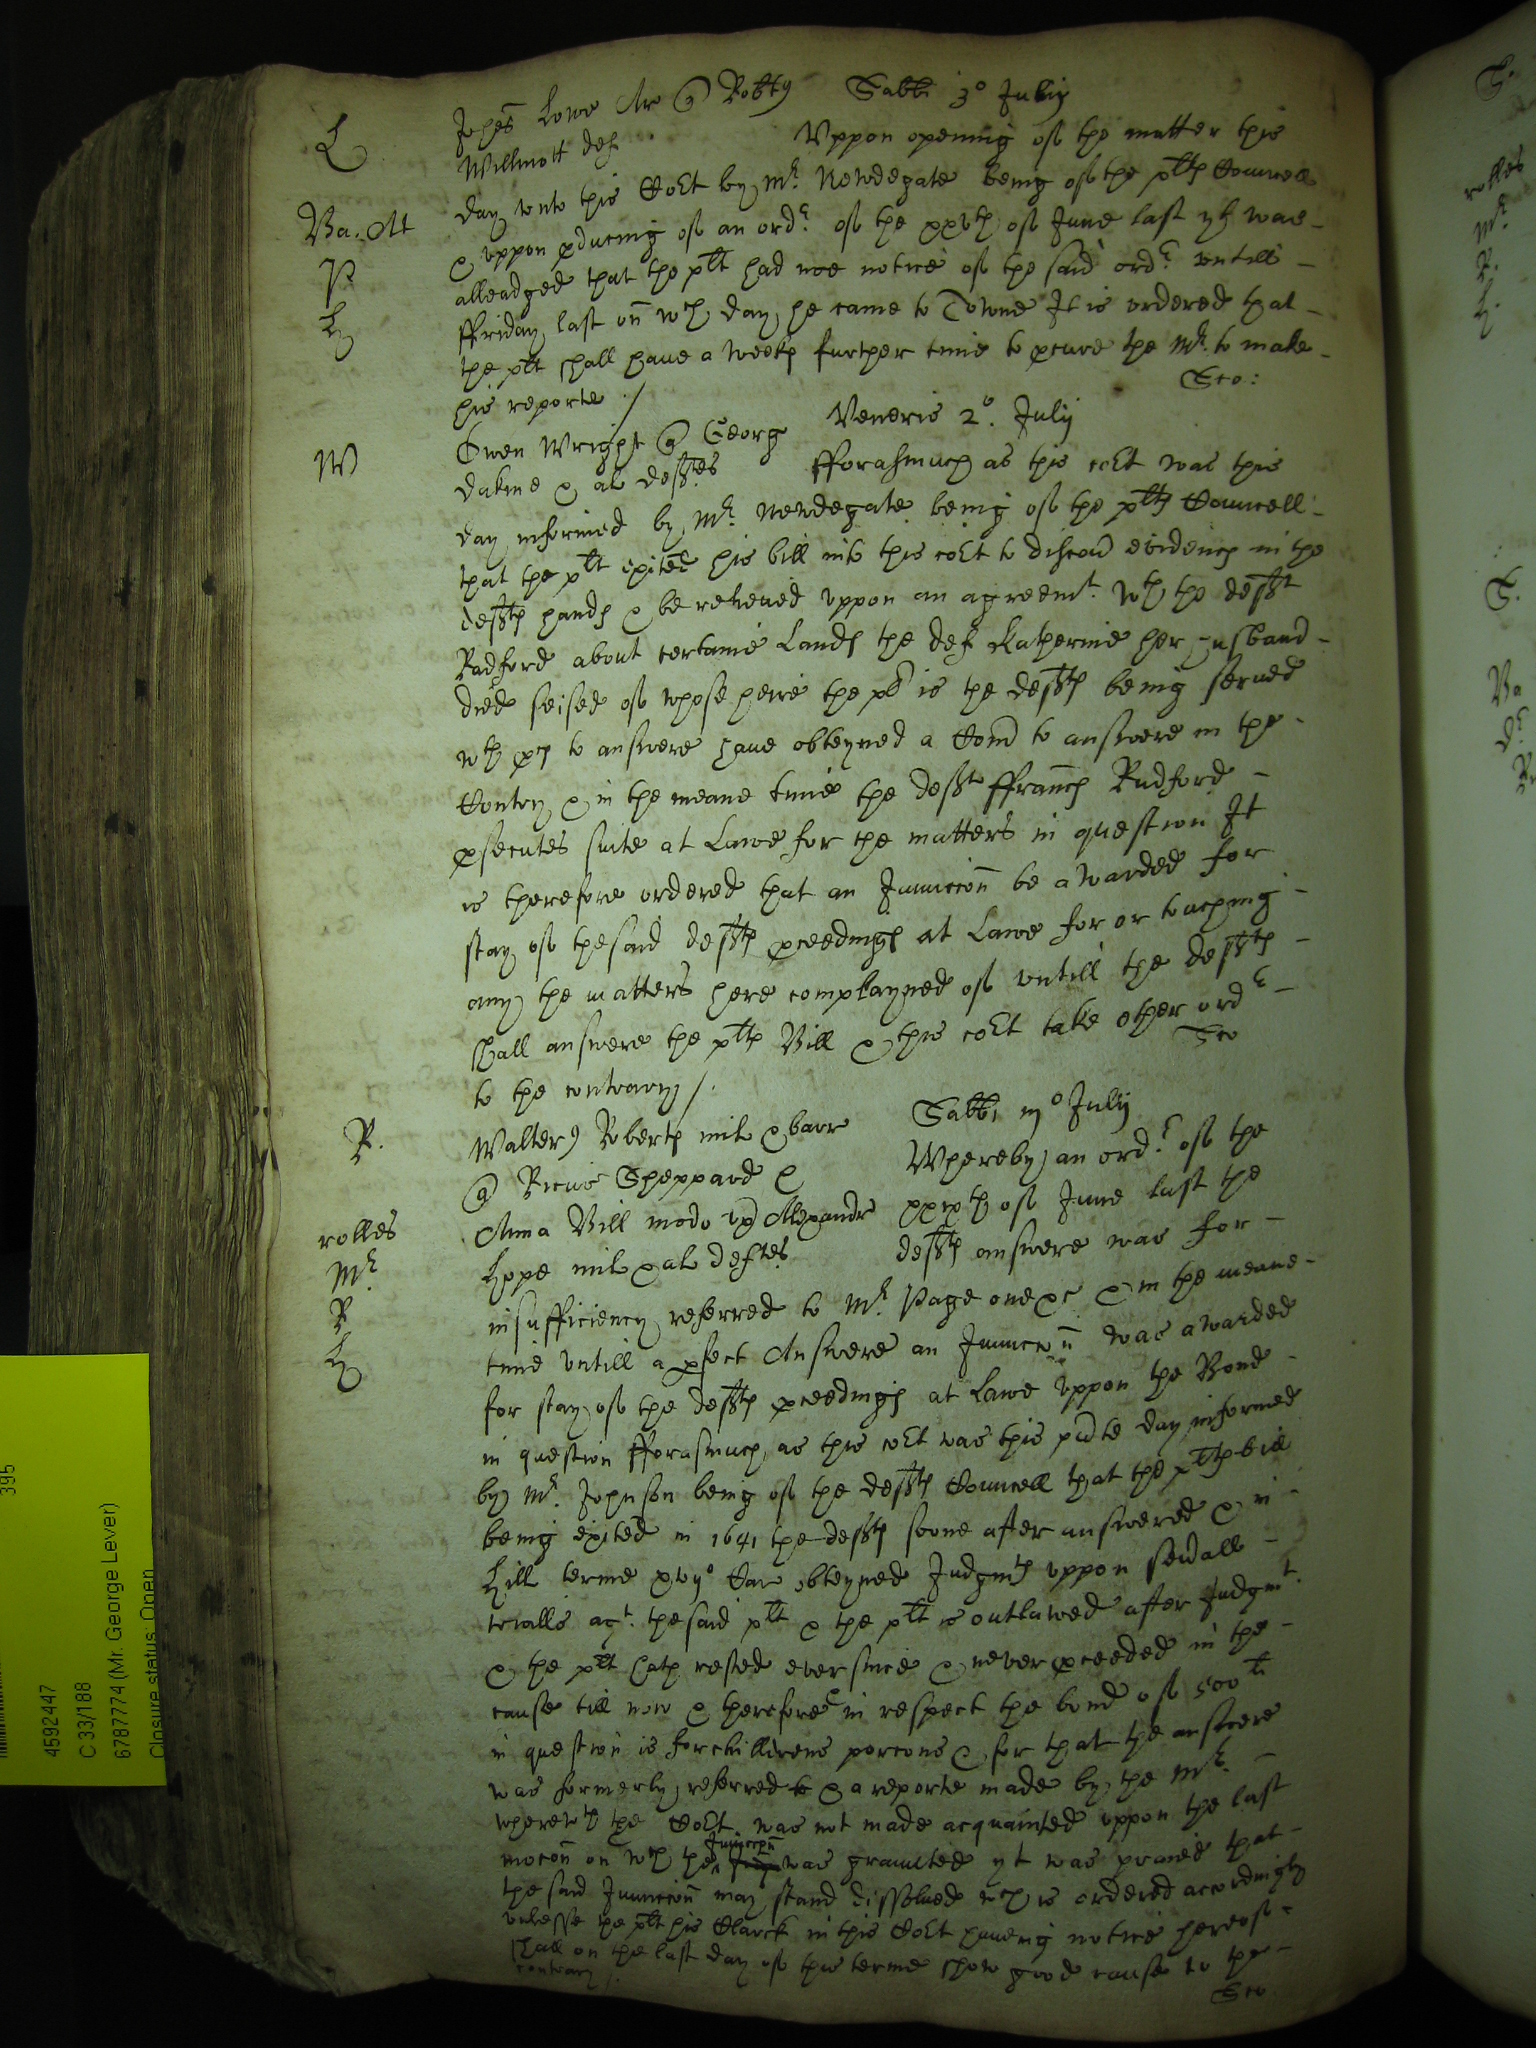 L
Johes Lowe Ar @ Robtu Sabbi 3º Julij
Willmott def Vppon opening of the matter this
day vnto this Court by Mr. Newdegate being of the pltes Councell
Ba. Att
& vppon pducing of an ordr. of the xxvth of June last yt was
P
alleadged that the plt had noe notice of the said ordr. vntill
Hy
ffriday last on wch day he came to Towne It is ordered that
the plt shall haue a weekes further time to pcure the Mr. to make
his reporte /
Veneris 2º. Julij
W
Owen Wright @ Georg
Dakine & al defftes fforasmuch as this cort was this
day informed by Mr. Newdegate being of the pltes Councell
that the plt exited his bill into this cort to discour evidences in the
deftes hands & be releiued vppon an agreemt. wth the defft
Radford about certaine Lands the def Katherine her husband
died seised of whose heire the pl is the deftes being serued
wth pces to answere haue obteyned a Comd to answere in the
Contry & in the meane time the deft ffrances Radford
psecutes suite at Lawe for the matters in question It
is therefore ordered that an Iniuncion be awarded for
stay of the said deftes pceedings at Lawe for or touching
any the matters here complayned of vntill the deftes
shall answere the pltes Bill & this cort take other ordr
to the contrary /.
P.
Walteru Roberts mil & barr Sabbi iijº Julij
@ Ricus Sheppard & Whereby an ordr. of the
Anna Bill modo vx Alexandr xxixth of June last the
rolles
Hope mil & al deftes deftes answere was for
Mr
insufficiency referred to Mr. Page one &c & in the meane
P
time vntill a pfect Answere an Iniuncion was awarded
Hy
for stay of the deftes pceedings at Lawe vppon the Bond
in question fforasmuch as this cort was this pnte day informed
by Mr. Johnson being of the deftes Councell that the pltes bill
being exited in 1641 the deftes soone after answered & in
Hill terme xvijº Car obteyned Judgmts vppon seuall
trialls agt. the said plt & the plt is outlawed after Judgmt.
& the plt hath rested euer since & neuer pceeded in the
cause till now & therefore in respect the bond of 500li
in question is for chilldrens porcons & for that the answere
was formerly referred & a reporte made by the Mr.
wherewth the Cort was not made acquainted vppon the last
mocon on wch the Iniuncion was graunted yt was praied that
the said Iniuncion may stand dissolued wch is ordered accordingly
vnlesse the plt his Clarck in this Cort haueing notice hereof
shall on the last day of this terme show good cause to the
contrary /.
4592447
C 33/188
6787774 (Mr. George Lever)
Closure status: Open
395